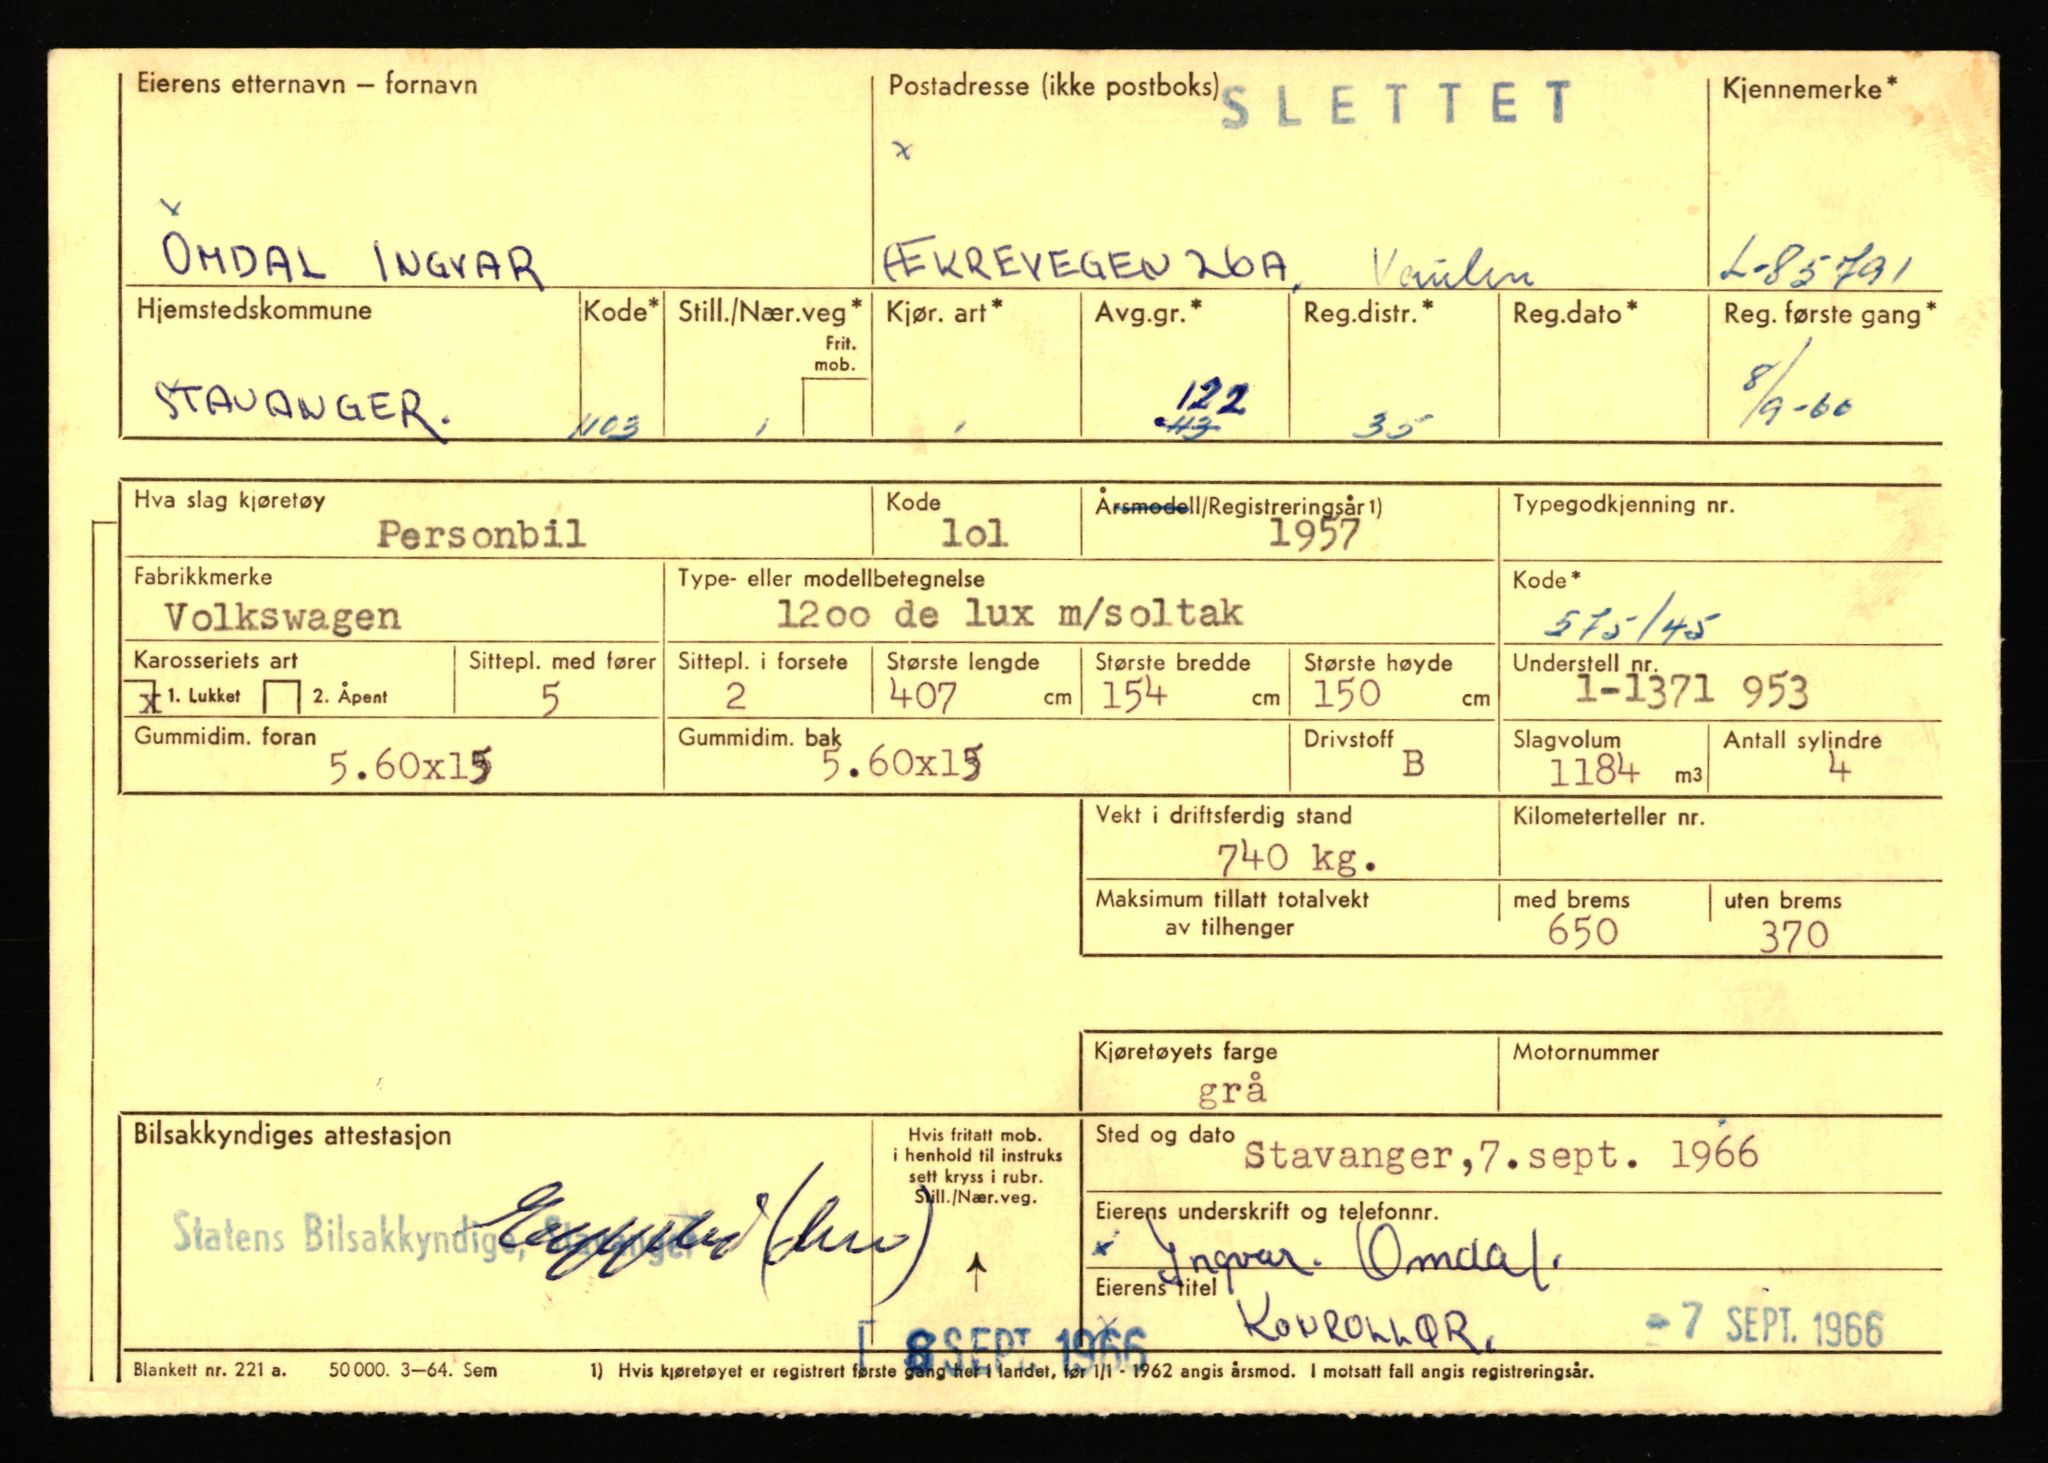 Eierens etternavn – fornavn
Postadresse (ikke postboks)
SLETTET
Kjennemerke*
x
x
OMDAL INGVAR
ÆKREVEGEN 26A, Vaulen
L-85791
Hjemstedskommune
Kode*
Still./Nær.veg*
Frit.
mob.
Kjør. art*
Avg.gr.*
Reg.distr.*
Reg.dato*
Reg. første gang*
STAVANGER.
1103
1
1
122
113
35
8/9-66
Hva slag kjøretøy
Personbil
Kode
lol
Årsmodell/Registreringsår 1)
1957
Typegodkjenning nr.
Fabrikkmerke
Volkswagen
Type- eller modellbetegnelse
12oo de lux m/soltak
Kode*
575/45
Karosseriets art
x 1. Lukket 2. Åpent
Sittepl. med fører
5
Sittepl. i forsete
2
Største lengde
407 cm
Største bredde
154 cm
Største høyde
150 cm
Understell nr.
1-1371 953
Gummidim. foran
5.60x15
Gummidim. bak
5.60x15
Drivstoff
B
Slagvolum
1184 m3
Antall sylindre
4
Vekt i driftsferdig stand
740 kg.
Kilometerteller nr.
Maksimum tillatt totalvekt
av tilhenger
med brems
650
uten brems
370
Kjøretøyets farge
grå
Motornummer
Bilsakkyndiges attestasjon
Statens Bilsakkyndige, Stavanger
Hvis fritatt mob.
i henhold til instruks
sett kryss i rubr.
Still./Nær.veg.
Sted og dato
Stavanger,7.sept. 1966
Eierens underskrift og telefonnr.
x Ingvar. Omdal.
Eierens titel
KONROLLØR.
- 7 SEPT. 1966
8 SEPT. 1966
Blankett nr. 221 a. 50 000. 3–64. Sem
1) Hvis kjøretøyet er registrert første gang her i landet, før 1/1 - 1962 angis årsmod. I motsatt fall angis registreringsår.